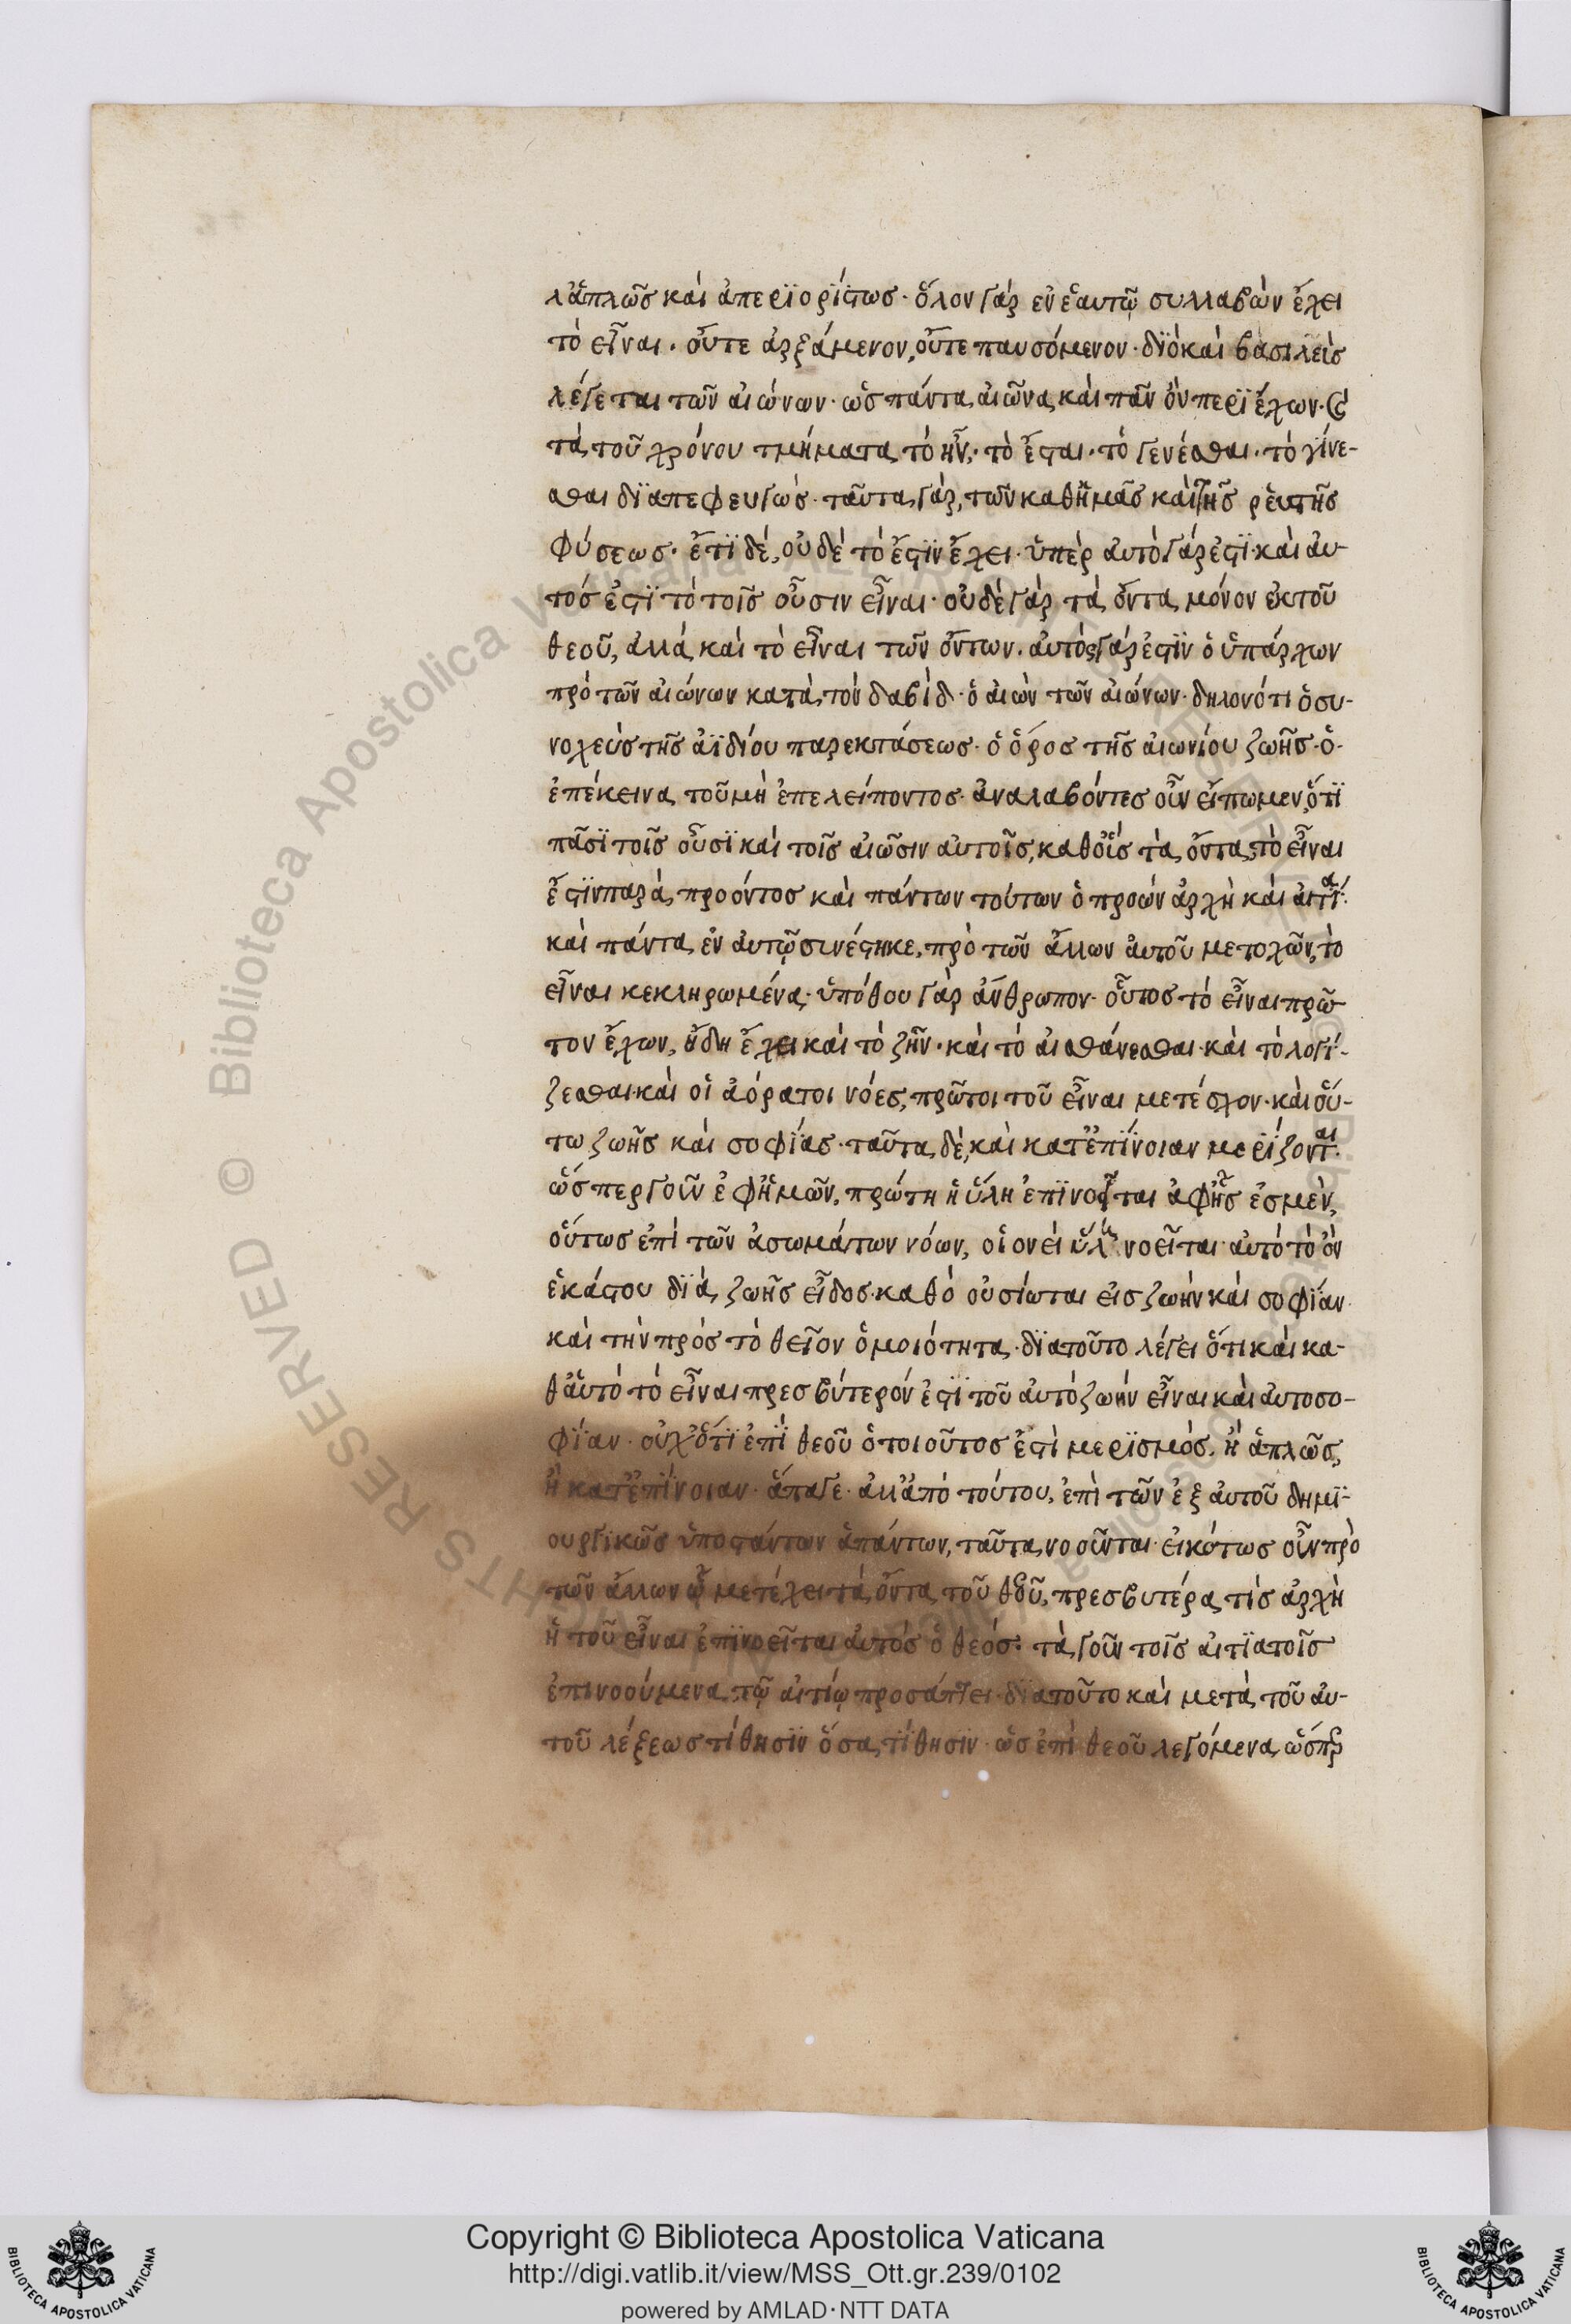 λ' ἁπλῶς καὶ ἀπεριορίστως· ὅλον γὰρ ἐν ἑαυτῷ συλλαβὼν ἔχει
τὸ εἶναι· οὔτε ἀρξάμενον, οὔτε παυσόμενον· διὸ καὶ βασιλεὺς
λέγεται τῶν αἰώνων· ὡς πάντα αἰῶνα καὶ πᾶν ὂν περιέχων· καὶ
τὰ τοῦ χρόνου τμήματα τὸ ἦν· τὸ ἔσται· τὸ γενέσθαι· τὸ γίνε-
σθαι διαπεφευγώς· ταῦτα γὰρ, τῶν καθ' ἡμᾶς καὶ τῆς ῥευστῆς
φύσεως· ἔτι δὲ, οὐδὲ τὸ ἔστιν ἔχει· ὑπὲρ αὐτὸ γάρ ἐστι· καὶ αὐ-
τός ἐστι τὸ τοῖς οὖσιν εἶναι· οὐδὲ γὰρ τὰ ὄντα μόνον ἐκ τοῦ
θεοῦ, ἀλλὰ καὶ τὸ εἶναι τῶν ὄντων· αὐτὸς γάρ ἐστιν ὁ ὑπάρχων
πρὸ τῶν αἰώνων κατὰ τὸν δαβὶδ· ὁ αἰὼν τῶν αἰώνων· δηλονότι ὁ συ-
νοχεὺς τῆς ἀϊδίου παρεκτάσεως· ὁ ὅρος τῆς αἰωνίου ζωῆς· ὁ
ἐπέκεινα τοῦ μὴ ἐπελείποντος· ἀναλαβόντες οὖν εἴπωμεν, ὅτι
πᾶσι τοῖς οὖσι καὶ τοῖς αἰῶσιν αὐτοῖς, καθ' οἷς τὰ ὄντα, τὸ εἶναι
ἔστιν παρὰ προόντος καὶ πάντων τούτων ὁ προὼν ἀρχὴ καὶ αἰτία·
καὶ πάντα ἐν αὐτῷ συνέστηκε, πρὸ τῶν ἄλλων αὐτοῦ μετοχῶν, τὸ
εἶναι κεκληρωμένα· ὑπόθου γὰρ ἄνθρωπον· οὗτος τὸ εἶναι πρῶ
τον ἔχων, ἤδη ἔχει καὶ τὸ ζῆν· καὶ τὸ αἰσθάνεσθαι· καὶ τὸ λογί-
ζεσθαι· καὶ οἱ ἀόρατοι νόες, πρῶτοι τοῦ εἶναι μετέσχον· καὶ οὕ-
τω ζωῆς καὶ σοφίας· ταῦτα δὲ, καὶ κατ' ἐπίνοιαν μερίζονται·
ὥσπερ γοῦν ἐφ' ἡμῶν, πρώτη ἡ ὕλη ἐπινοεῖται ἀφ' ἧς ἐσμὲν,
οὕτως ἐπὶ τῶν ἀσωμάτων νόων, οἱονεὶ ὕλη νοεῖται αὐτὸ τὸ ὂν
ἑκάστου διὰ ζωῆς εἶδος· καθὸ οὐσίωται εἰς ζωὴν καὶ σοφίαν
καὶ τὴν πρὸς τὸ θεῖον ὁμοιότητα· διατοῦτο λέγει ὅτι καὶ κα-
θ' αὑτὸ τὸ εἶναι πρεσβύτερόν ἐστι τοῦ αὐτοζωὴν εἶναι καὶ αὐτοσο-
φίαν· οὐχ' ὅτι ἐπὶ θεοῦ ὁ τοιοῦτος ἐστὶ μερισμός, ἢ ἁπλῶς,
ἢ κατ' ἐπίνοιαν· ἄπαγε· ἀλλ' ἀπὸ τούτου, ἐπὶ τῶν ἐξ αὐτοῦ δημι-
ουργικῶς ὑποστάντων ἁπάντων, ταῦτα νοοῦνται· εἰκότως οὖν πρὸ
τῶν ἄλλων ὧ μετέχει τὰ ὄντα τοῦ θεοῦ, πρεσβυτέρα τίς ἀρχὴ
ἡ τοῦ εἶναι ἐπινοεῖται αὐτὸς ὁ θεός· τὰ γοῦν τοῖς αἰτιατοῖς
ἐπινοούμενα τῷ αἰτίῳ προσάπτει· διατοῦτο καὶ μετὰ τοῦ αὐ-
τοῦ λέξεως τίθησιν ὅσα τίθησιν· ὡς ἐπὶ θεοῦ λεγόμενα ὥσπερ
Copyright © Biblioteca Apostolica Vaticana
http://digi.vatlib.it/view/MSS_Ott.gr.239/0102
powered by AMLAD·NTT DATA